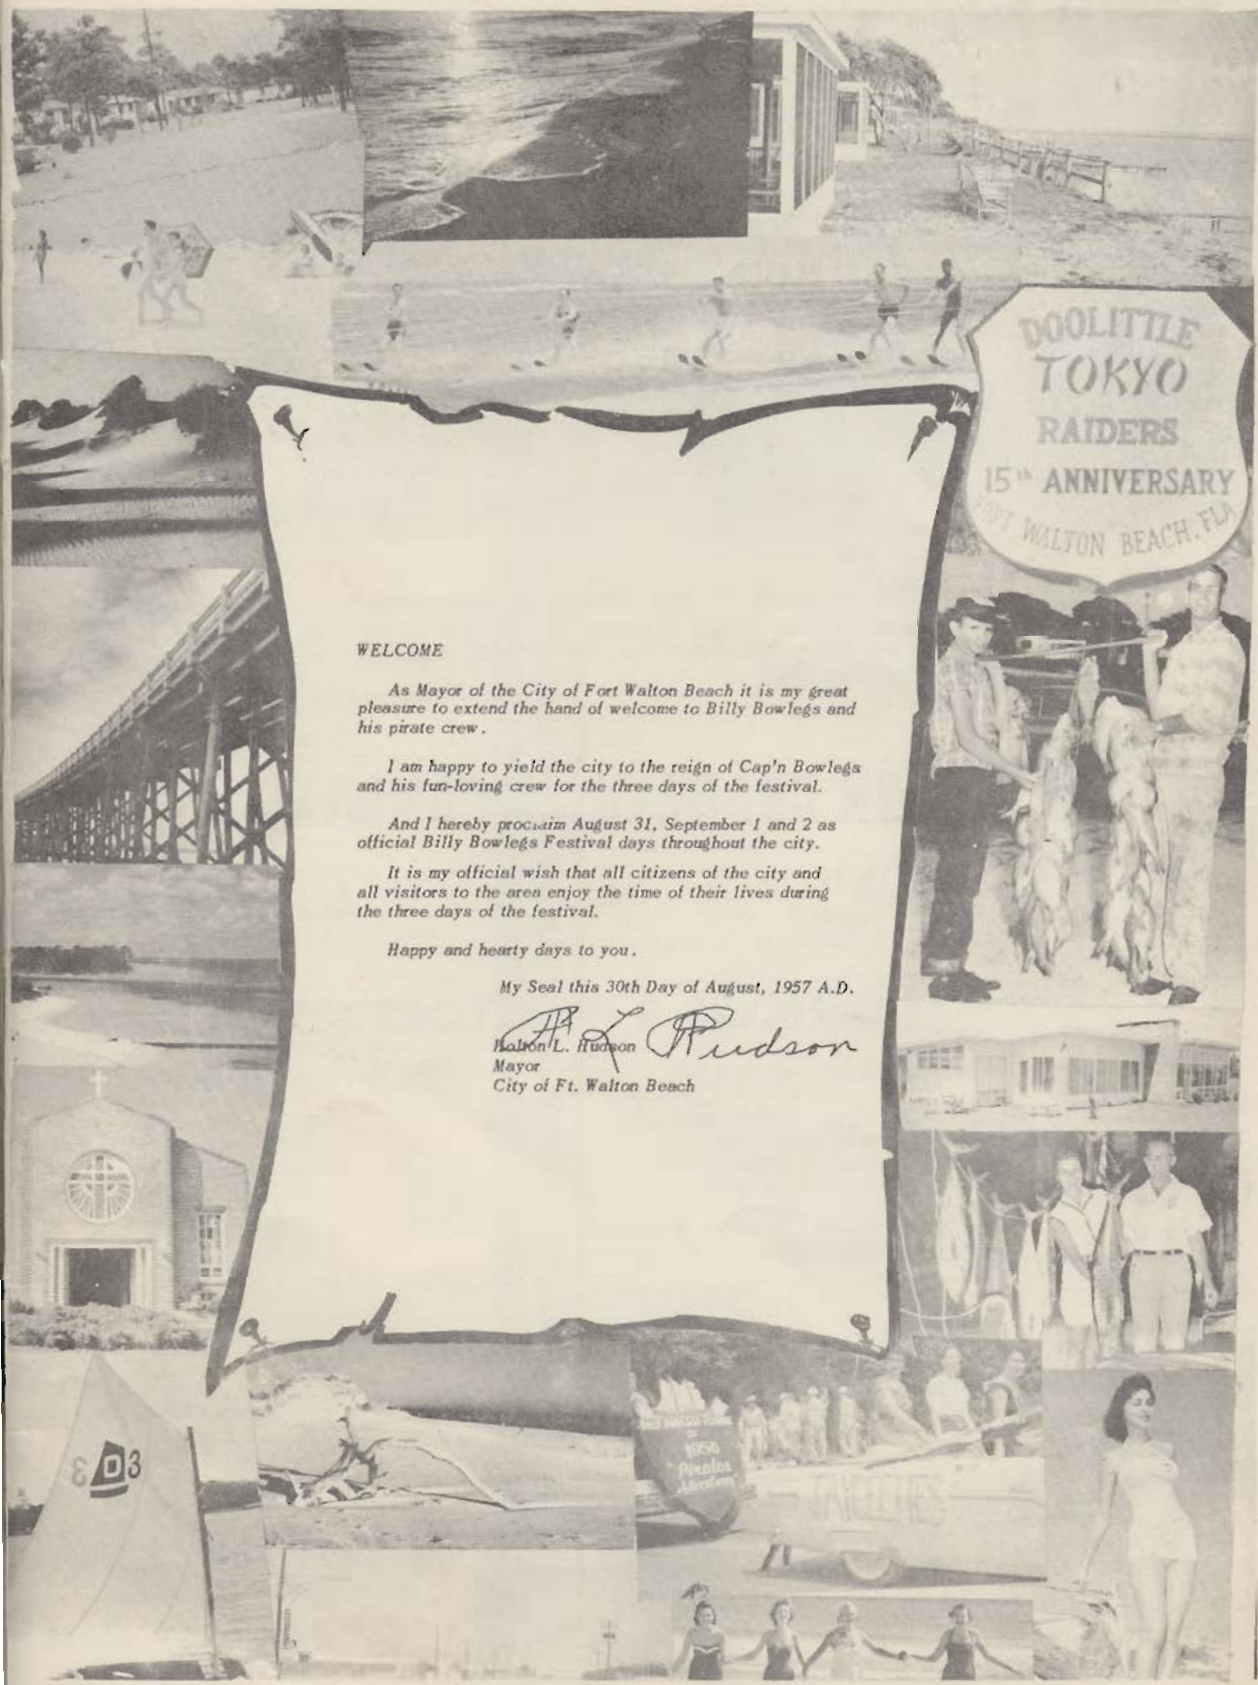 DOOLITTLE
TOKYO
RAIDERS
15th ANNIVERSARY
WALTON BEACH, FLA
WELCOME
As Mayor of the City of Fort Walton Beach it is my great
pleasure to extend the hand of welcome to Billy Bowlegs and
his pirate crew.
I am happy to yield the city to the reign of Cap'n Bowlegs
and his fun-loving crew for the three days of the festival.
And I hereby proclaim August 31, September 1 and 2 as
official Billy Bowlegs Festival days throughout the city.
It is my official wish that all citizens of the city and
all visitors to the area enjoy the time of their lives during
the three days of the festival.
Happy and hearty days to you.
My Seal this 30th Day of August, 1957 A.D.
L Hudson
L. Hudson
Mayor
City of Ft. Walton Beach
D3
1956
Pirates